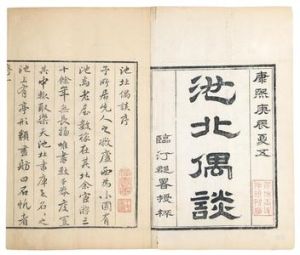 康熙庚辰夏五
池北偶談
臨汀郡署授梓
池北偶談序
予所居先人之敝廬西為小圃有
池焉老屋數椽在其北余宦遊三
十餘年無長物唯書數千卷庋置
其中輒取樂天池北書庫之名名之
池上有亭形類畫舫曰石帆者